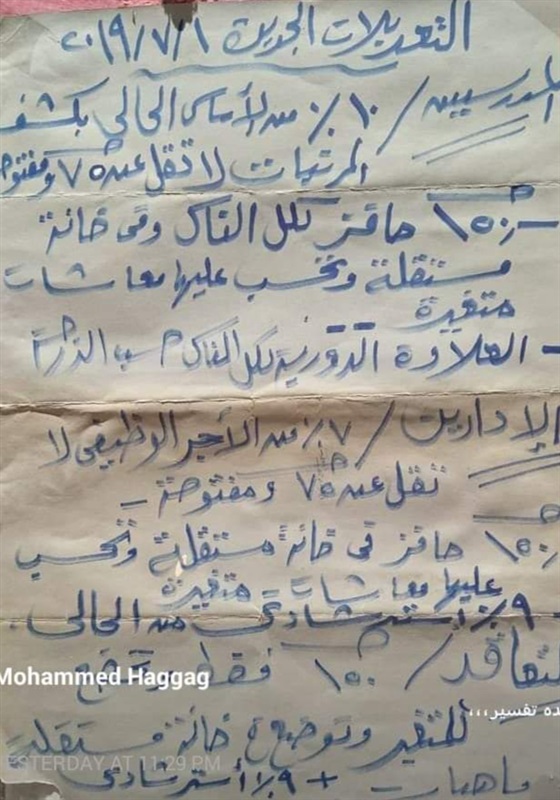 التعديلات الجديدة ٢٠١٩/٧/١
المدرسين / ١٠٪ من الأساسى الحالى بكشف
المرتبات لا تقل عن ٧٥ ج ومفتوحة
- ١٥٠ ج حافز لكل الناس وفى خانة
مستقلة وتحسب عليها معاشات
متغيرة
- العلاوة الدورية لكل الناس حسب الدرجة
الإداريين / ٧٪ من الأجر الوظيفى لا
تقل عن ٧٥ ج ومفتوحة -
١٥٠ ج حافز فى خانة مستقلة وتحسب
عليها معاشات متغيرة
- ٩٪ استرشادى من الحالى.
التعاقد / ١٥٠ ج فقط وتخضع
للمتغير وتوضع فى خانة مستقلة
+ ٩٪ استرشادى
Mohammed Haggag
ده تفسير،،،
YESTERDAY AT 11:29 PM